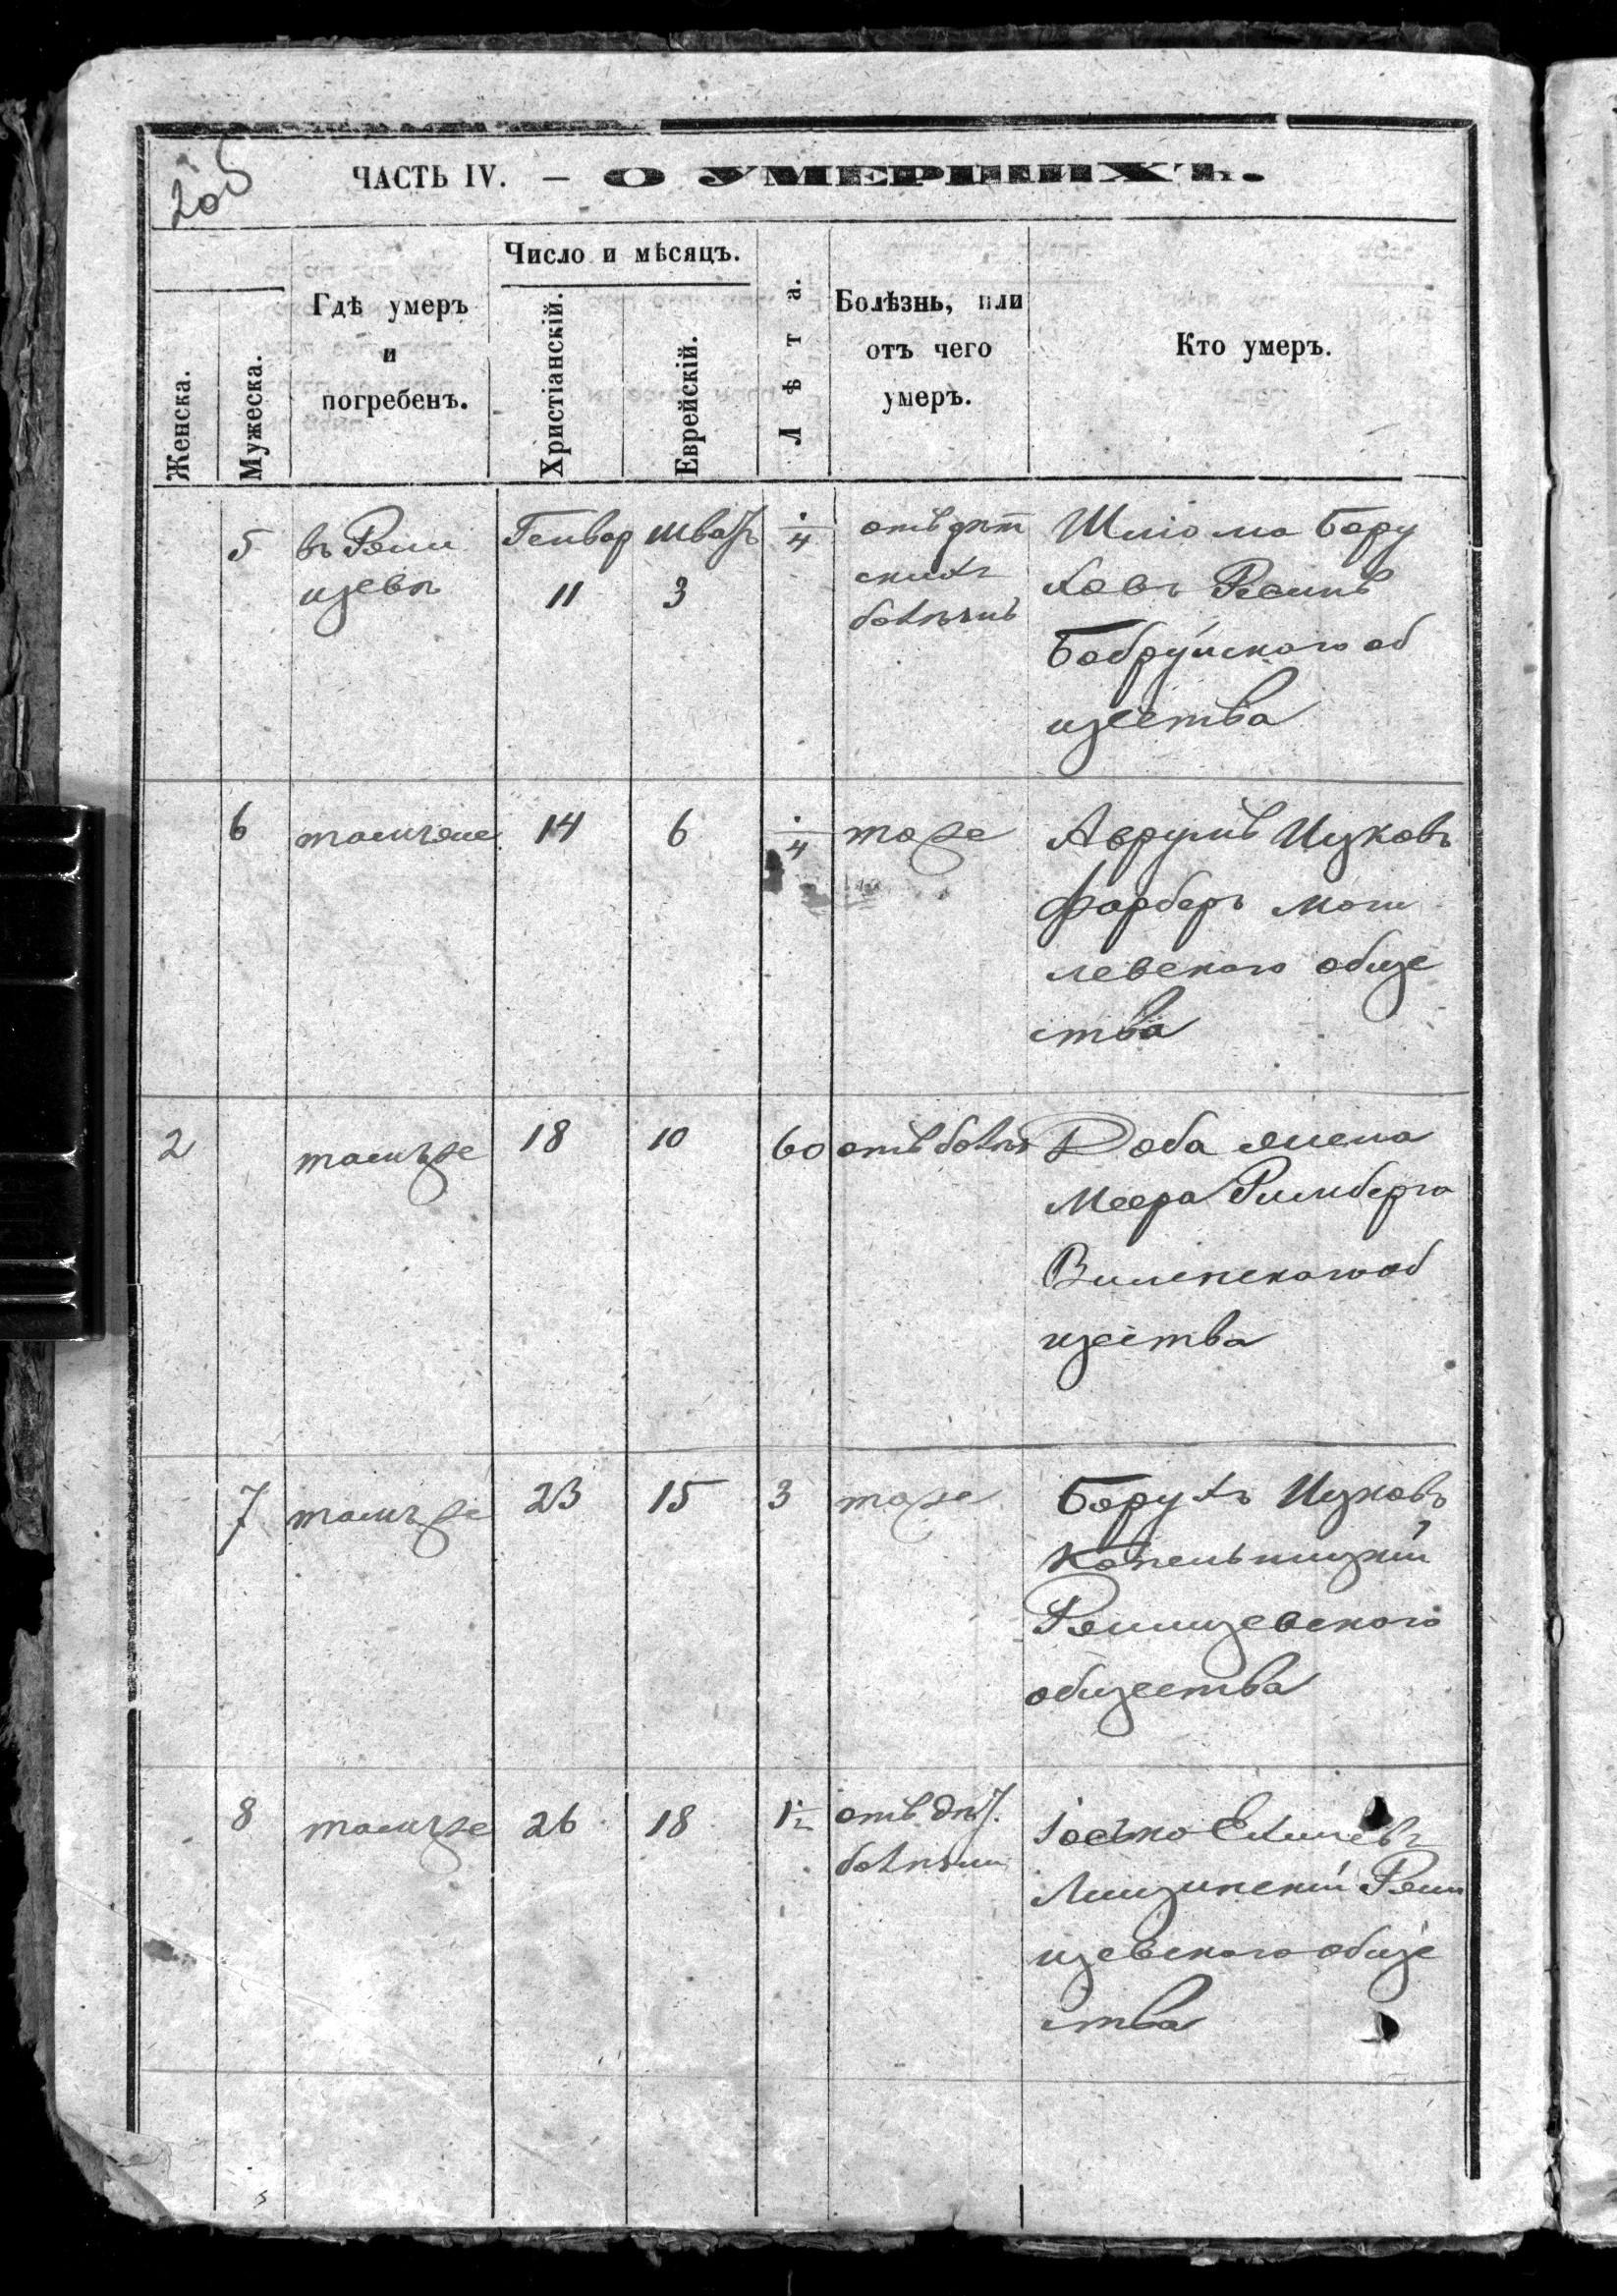 205
ЧАСТЬ IV. — О УМЕРШИХЪ.
Женска.
Мужеска.
Гдѣ умеръ
и
погребенъ.
Число и мѣсяцъ.
Христіанскій.
Еврейскій.
Лѣта.
Болѣзнь, или
отъ чего
умеръ.
Кто умеръ.
5 въ Реш Генвар Шватъ 1/4 отъ дѣт Шліома Бору
ицевѣ 11 3 скихъ ховъ
болѣзнь Бобруйского об
щества
6 тамъже 14 6 1/4 тоже Аврумъ Ицковъ
Фарберъ Моги
левского обще
ства
2 тамъже 18 10 60 отъ болѣз Доба жена
Меера Римберга
Виленскаго об
щества
7 тамъже 23 15 3 тоже Борухъ Ицковъ
Копельницкій
Речицевского
общества
8 тамъже 26 18 1 1/2 отъ дѣт. Іосько
болѣзни
цевского обще
ства